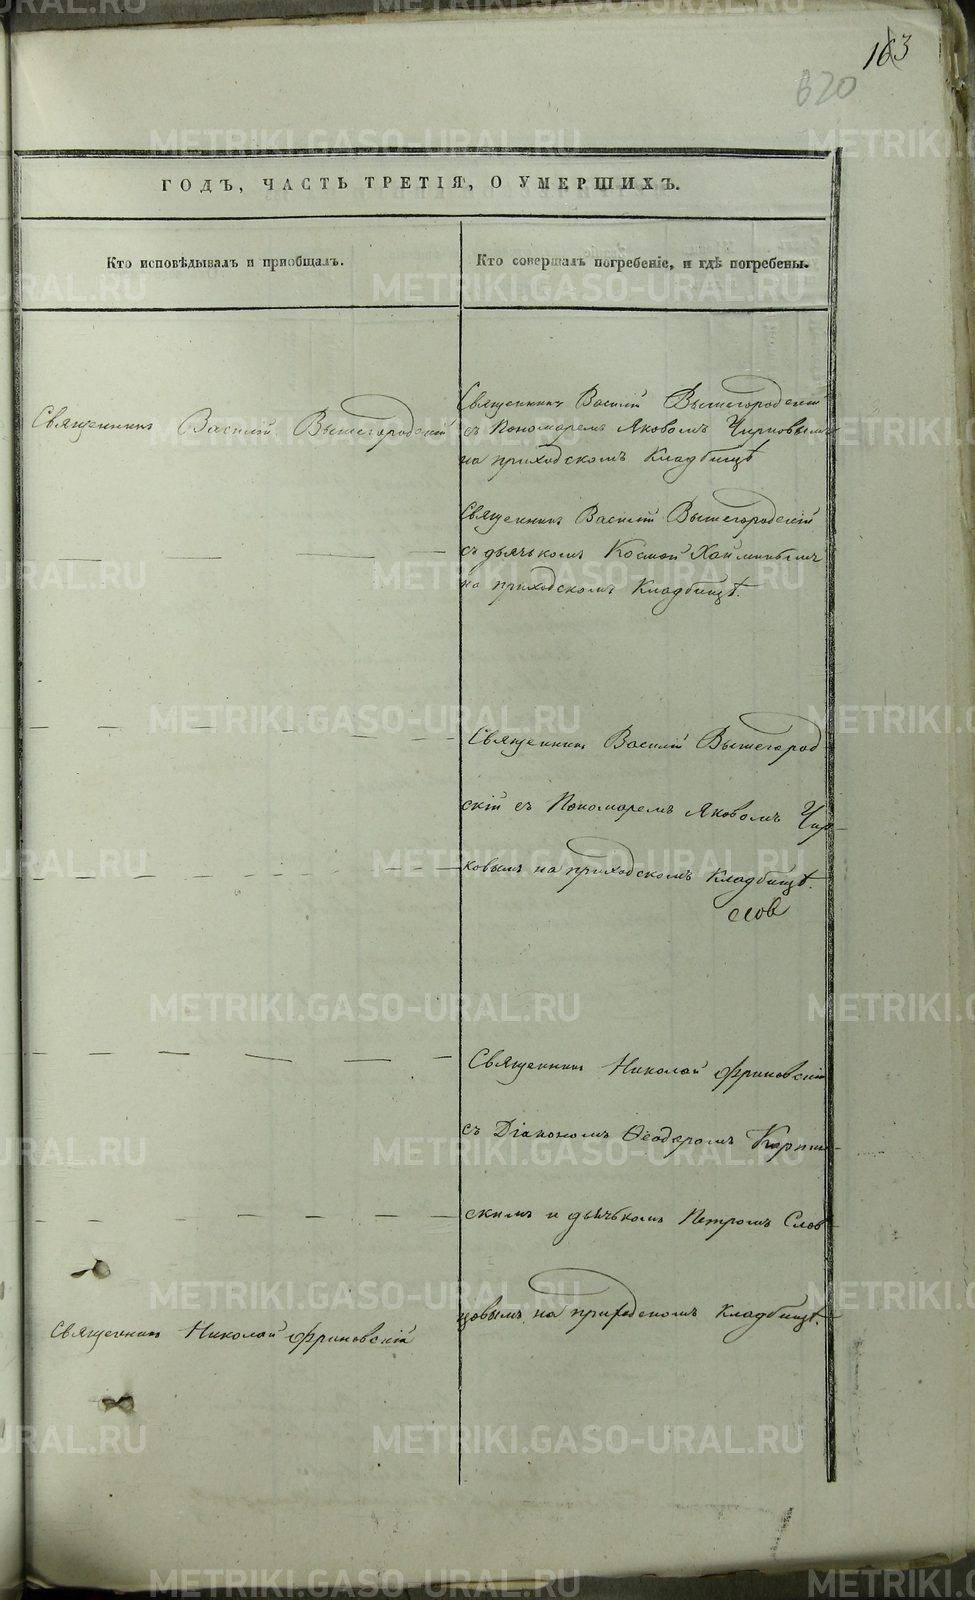 163
620
ГОДЪ, ЧАСТЬ ТРЕТІЯ, О УМЕРШИХЪ.
Кто исповѣдывалъ и пріобщалъ.
Кто совершалъ погребеніе, и гдѣ погребены.
Священникъ Василій Вышегородскій
Священникъ Василій Вышегородскій
съ Пономаремъ Яковомъ Чирковымъ
на приходскомъ Кладбищѣ
Священникъ Василій Вышегородскій
съ дьячькомъ Космой
на приходскомъ Кладбищѣ.
Священникъ Василій Вышегород
скій съ Пономаремъ Яковомъ Чир-
ковымъ на приходскомъ Кладбищѣ.
Священникъ Николай Фриновскій
съ Діакономъ Ѳеодоромъ
скимъ и дьячькомъ Петромъ Слов
цовымъ на приходскомъ Кладбищѣ.
Священникъ Николай Фриновскій
METRIKI.GASO-URAL.RU